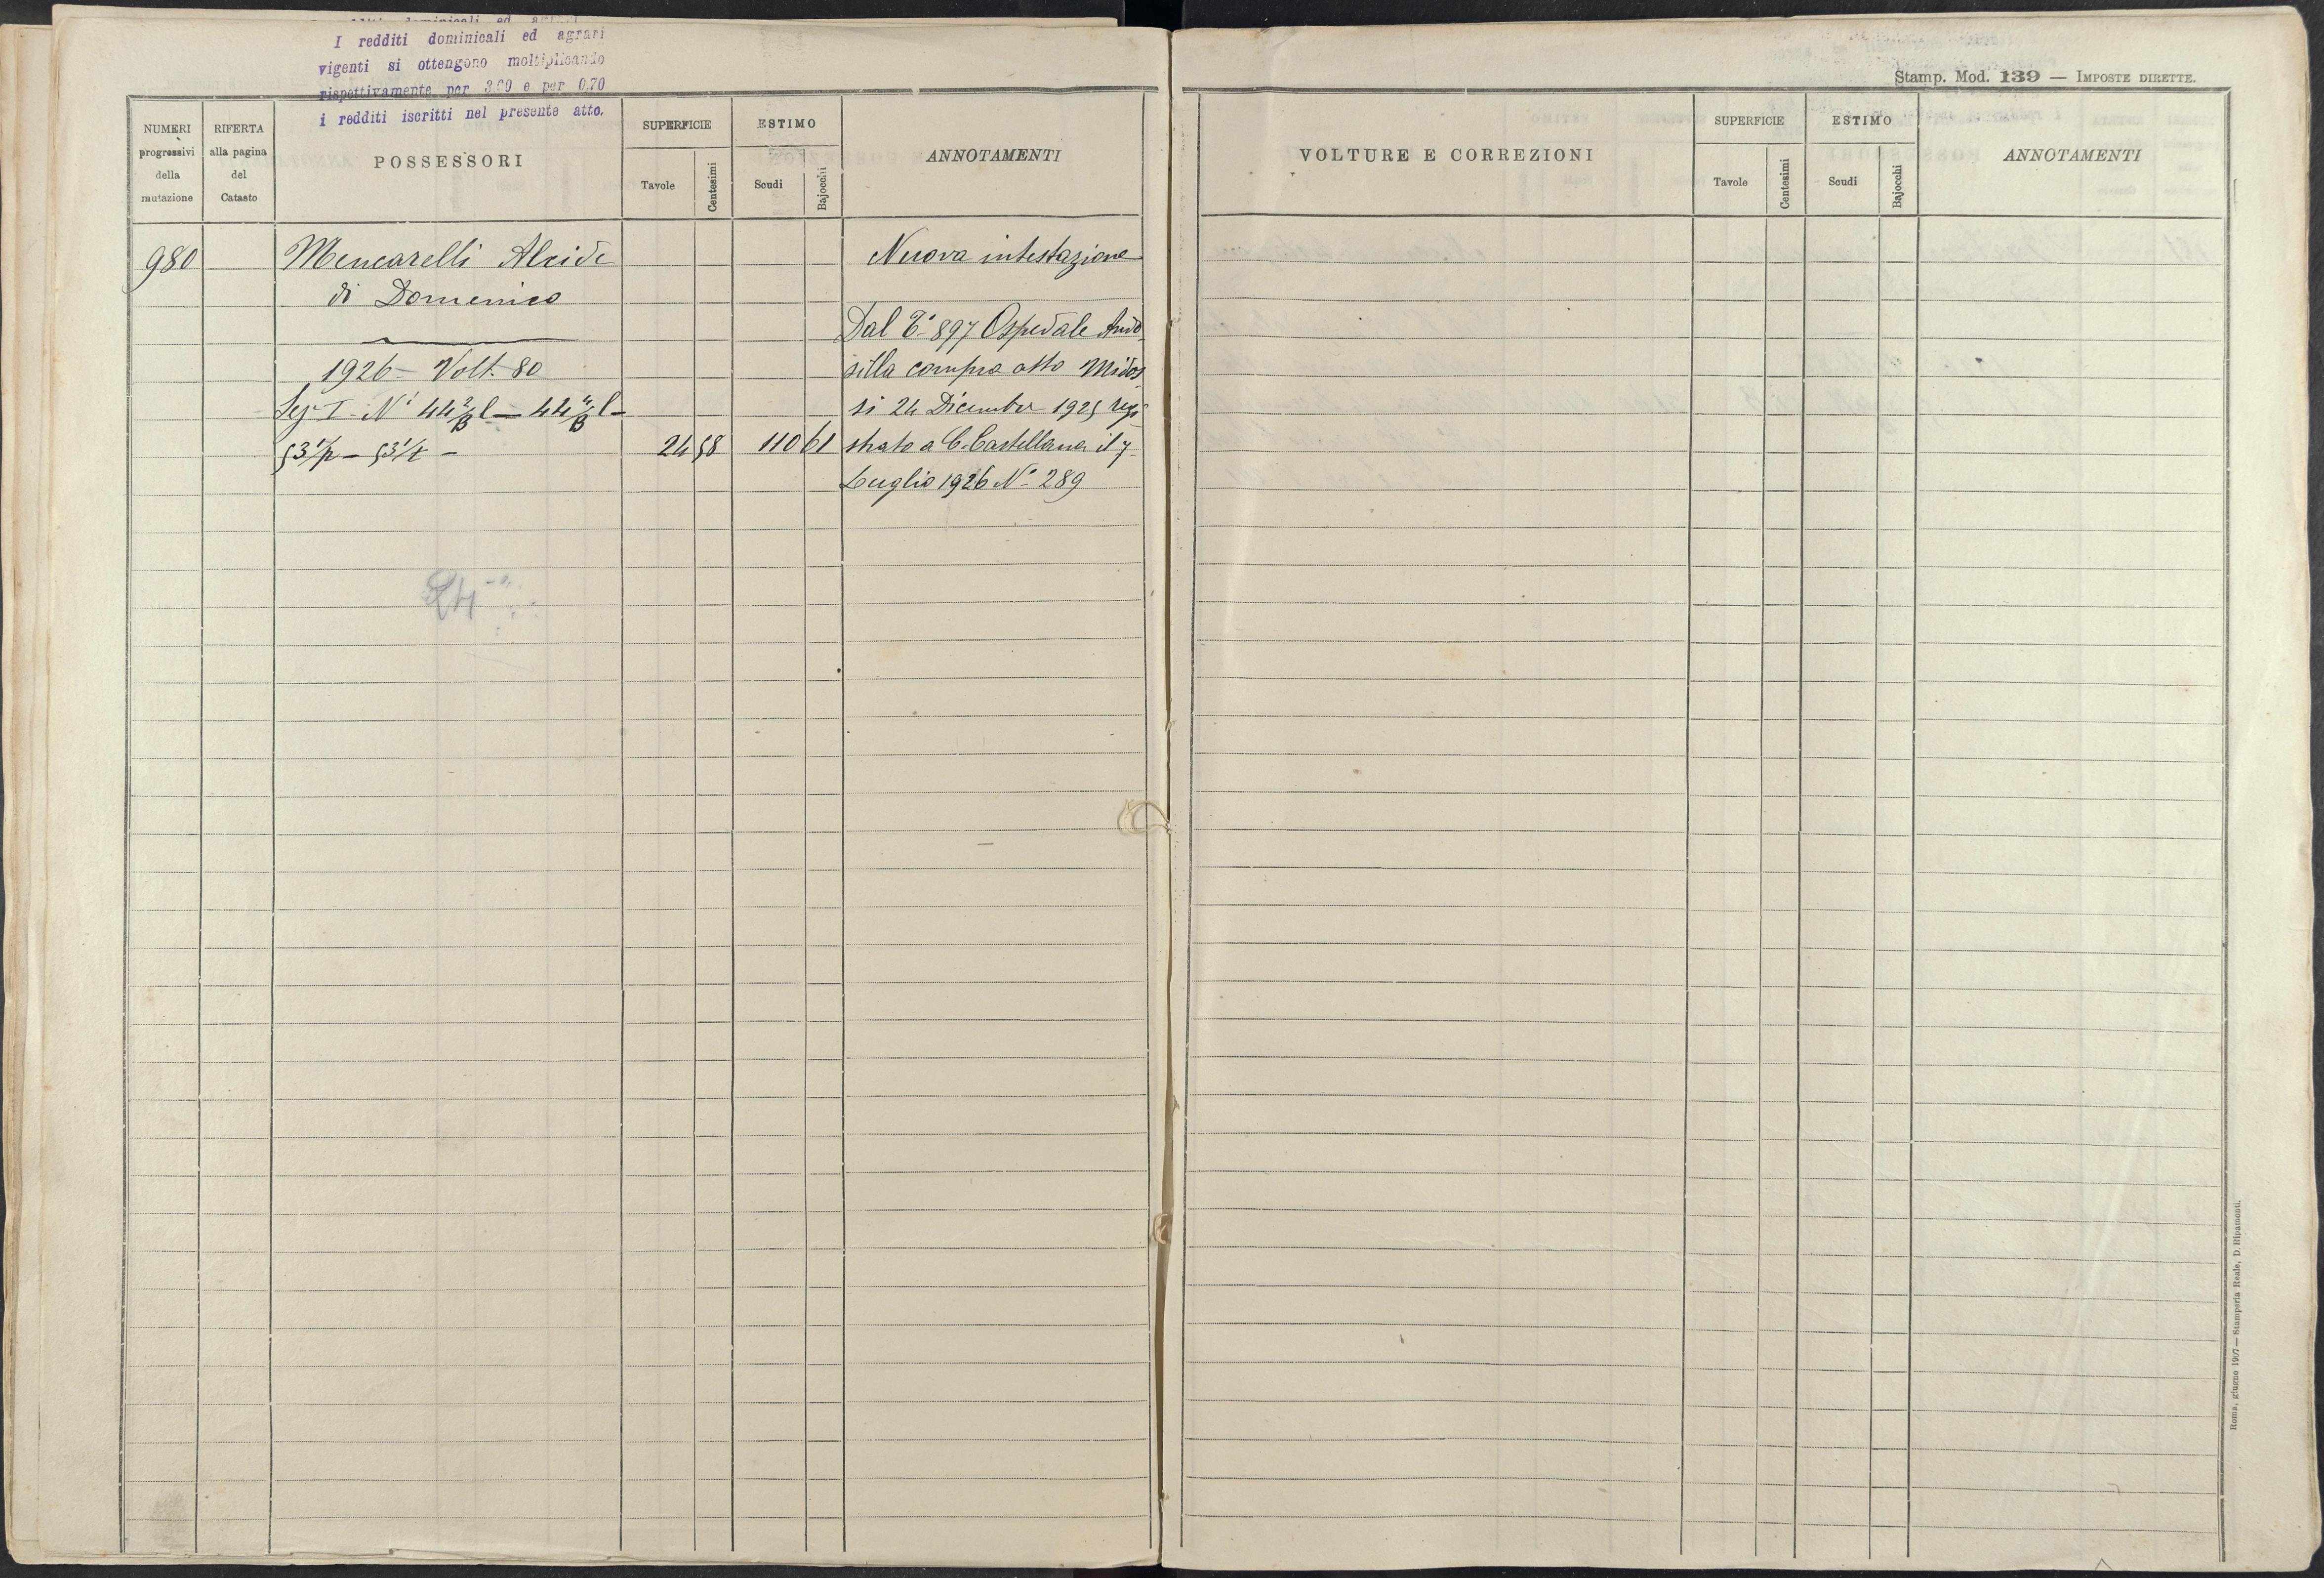 I redditi dominicali ed agrari
vigenti si ottengono moltiplicando
rispettivamente per 3.60 e per 0.70
i redditi iscritti nel presente atto.
Stamp. Mod. 139 — IMPOSTE DIRETTE.
NUMERI progressivi della mutazione
RIFERTA alla pagina del Catasto
POSSESSORI
SUPERFICIE
Tavole
Centesimi
ESTIMO
Scudi
Bajocchi
ANNOTAMENTI
VOLTURE E CORREZIONI
SUPERFICIE
Tavole
Centesimi
ESTIMO
Scudi
Bajocchi
ANNOTAMENTI
980 Mencarelli Alcide Nuova intestazione
di Domenico
Dal 897 Ospedale Ando
1926 - Volt. 80 silla compra atto Midos
Sez I - N° 44 2/B l — 44 4/B l - si 24 Dicembre 1925 regi
53 1/p - 53 1/t - 24 58 110 61 strato a C. Castellana il 7
Luglio 1926 N° 289
24
Roma, giugno 1907 — Stamperia Reale, D. Ripamonti.